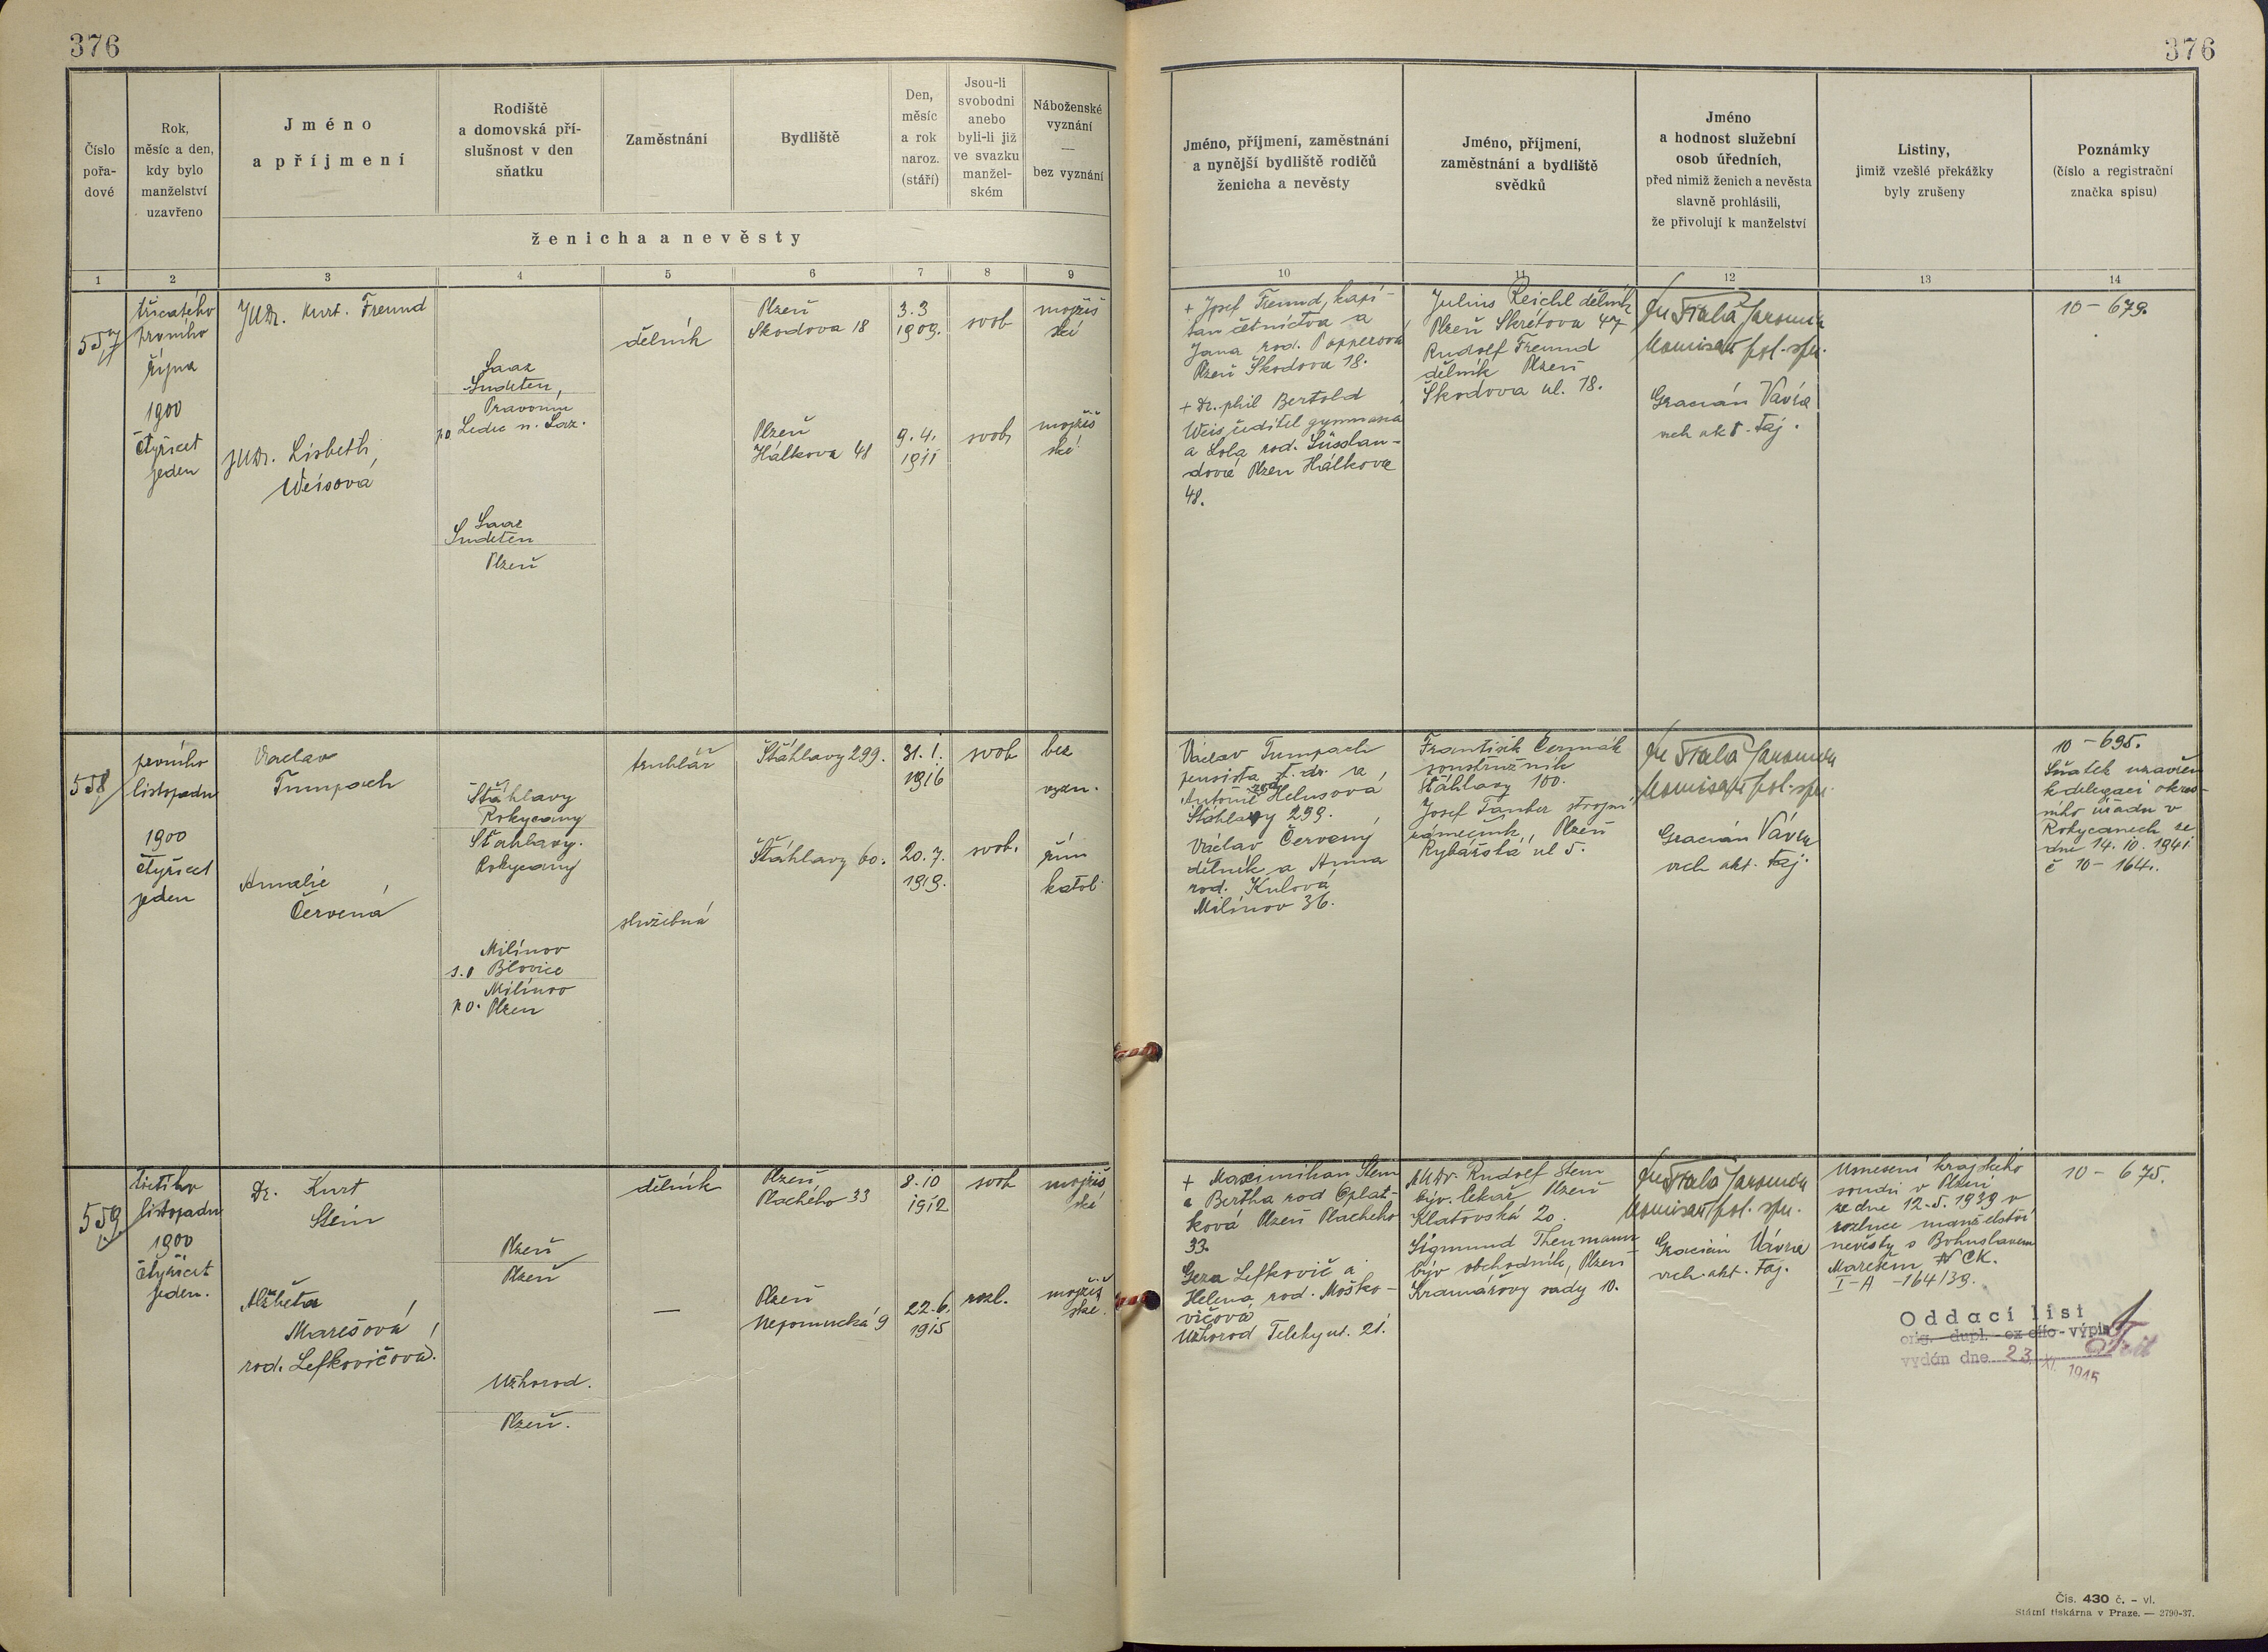 376
376
Číslo
pořa-
dové
Rok,
měsíc a den,
kdy bylo
manželství
uzavřeno
Jméno
a příjmení
Rodiště
a domovská pří-
slušnost v den
sňatku
Zaměstnání
Bydliště
Den,
měsíc
a rok
naroz.
(stáří)
Jsou-li
svobodni
anebo
byli-li již
ve svazku
manžel-
ském
Náboženské
vyznání
—
bez vyznání
ženicha a nevěsty
Jméno, příjmení, zaměstnání
a nynější bydliště rodičů
ženicha a nevěsty
Jméno, příjmení,
zaměstnání a bydliště
svědků
Jméno
a hodnost služební
osob úředních,
před nimiž ženich a nevěsta
slavně prohlásili,
že přivolují k manželství
Listiny,
jimiž vzešlé překážky
byly zrušeny
Poznámky
(číslo a registrační
značka spisu)
1 2 3 4 5 6 7 8 9 10 11 12 13 14
557
třicatého
prvního
října
1900
čtyřicet
jeden
JUDr. Kurt. Freund
JUDr. Lisbeth
Weisová
Saaz
Sudeten,
Pravonín
po Ledec n. Sáz.
Saaz
Sudeten
Plzeň
dělník
Plzeň
Škodova 18
Plzeň
Hálkova 48
3.3
1909.
9.4.
1911
svob
svob
mojžíš
ské
mojžíš
ské
+ Josef Freund, kapi-
tan četnictva a
Jana rod. Popperová
Plzeň Škodova 18.
+ Dr. phil Bertold
Weis ředitel gymnasia
a Lola rod. Süsslan-
dová Plzen Hálkova
48.
Julius Reichl dělník
Plzeň Skrétova 47
Rudolf Freund
dělník Plzeň
Škodova ul. 18.
Fiala Jaromír
komisař pol. spr.
Gracián Vávra
vrch akt. taj.
10-679.
558
prvního
listopadu
1900
čtyřicet
jeden
Václav
Tumpach
Amalie
Červená
Štáhlavy
Rokycany
Štáhlavy.
Rokycany
Milínov
s.o Blovice
Milínov
po. Plzeň
truhlář
služebná
Štáhlavy 299.
Štáhlavy 60.
31. 1.
1916
20. 7.
1919.
svob
svob.
bez
vyzn.
řím
katol
Václav Tumpach
pensista t. dr. a
Antonie rod. Helusová
Štáhlavy 299.
Václav Červený
dělník a Anna
rod. Kulová
Milínov 36.
František Čermák
soustružník
Štáhlavy 100.
Josef Tauber strojní
zámečník, Plzeň
Rybářská ul 5.
Fiala Jaromír
komisař pol. spr.
Gracián Vávra
vrch akt. taj.
10-695.
Sňatek uzavřen
k delegaci okres-
ního úřadu v
Rokycanech ze
dne 14. 10. 1941
č 10-164.
559
třetího
listopadu
1900
čtyřicet
jeden.
Dr. Kurt
Stein
Alžběta
Marešová
rod. Lefkovičová.
Plzeň
Plzeň
Užhorod.
Plzeň.
dělník
—
Plzeň
Plachého 33
Plzeň
Nepomucká 9
8.10
1912
22.6.
1915
svob
rozl.
mojžíš
ské
mojžíš
ské.
+ Maximilian Stein
a Bertha rod Oplat-
ková Plzeň Plachého
33.
Geza Lefkovič a
Helena rod. Moško-
vičová
Užhorod Teleky ut. 21.
MUDr. Rudolf Stein
býv. lékař Plzeň
Klatovská 20.
Sigmund Theumann
býv obchodník, Plzeň
Kramářovy sady 10.
Fiala Jaromír
komisař pol. spr.
Gracián Vávra
vrch. akt. taj.
Usnesení krajského
soudu v Plzni
ze dne 12.5.1939 v
rozluce manželství
nevěsty s Bohuslavem
Marešem CK.
I-A -164/39.
10-675.
Oddací list
orig. - dupl. - ex offo - výpis
vydán dne 23. XI. 1945
Čís. 430 č. - vl.
Státní tiskárna v Praze. — 2790-37.